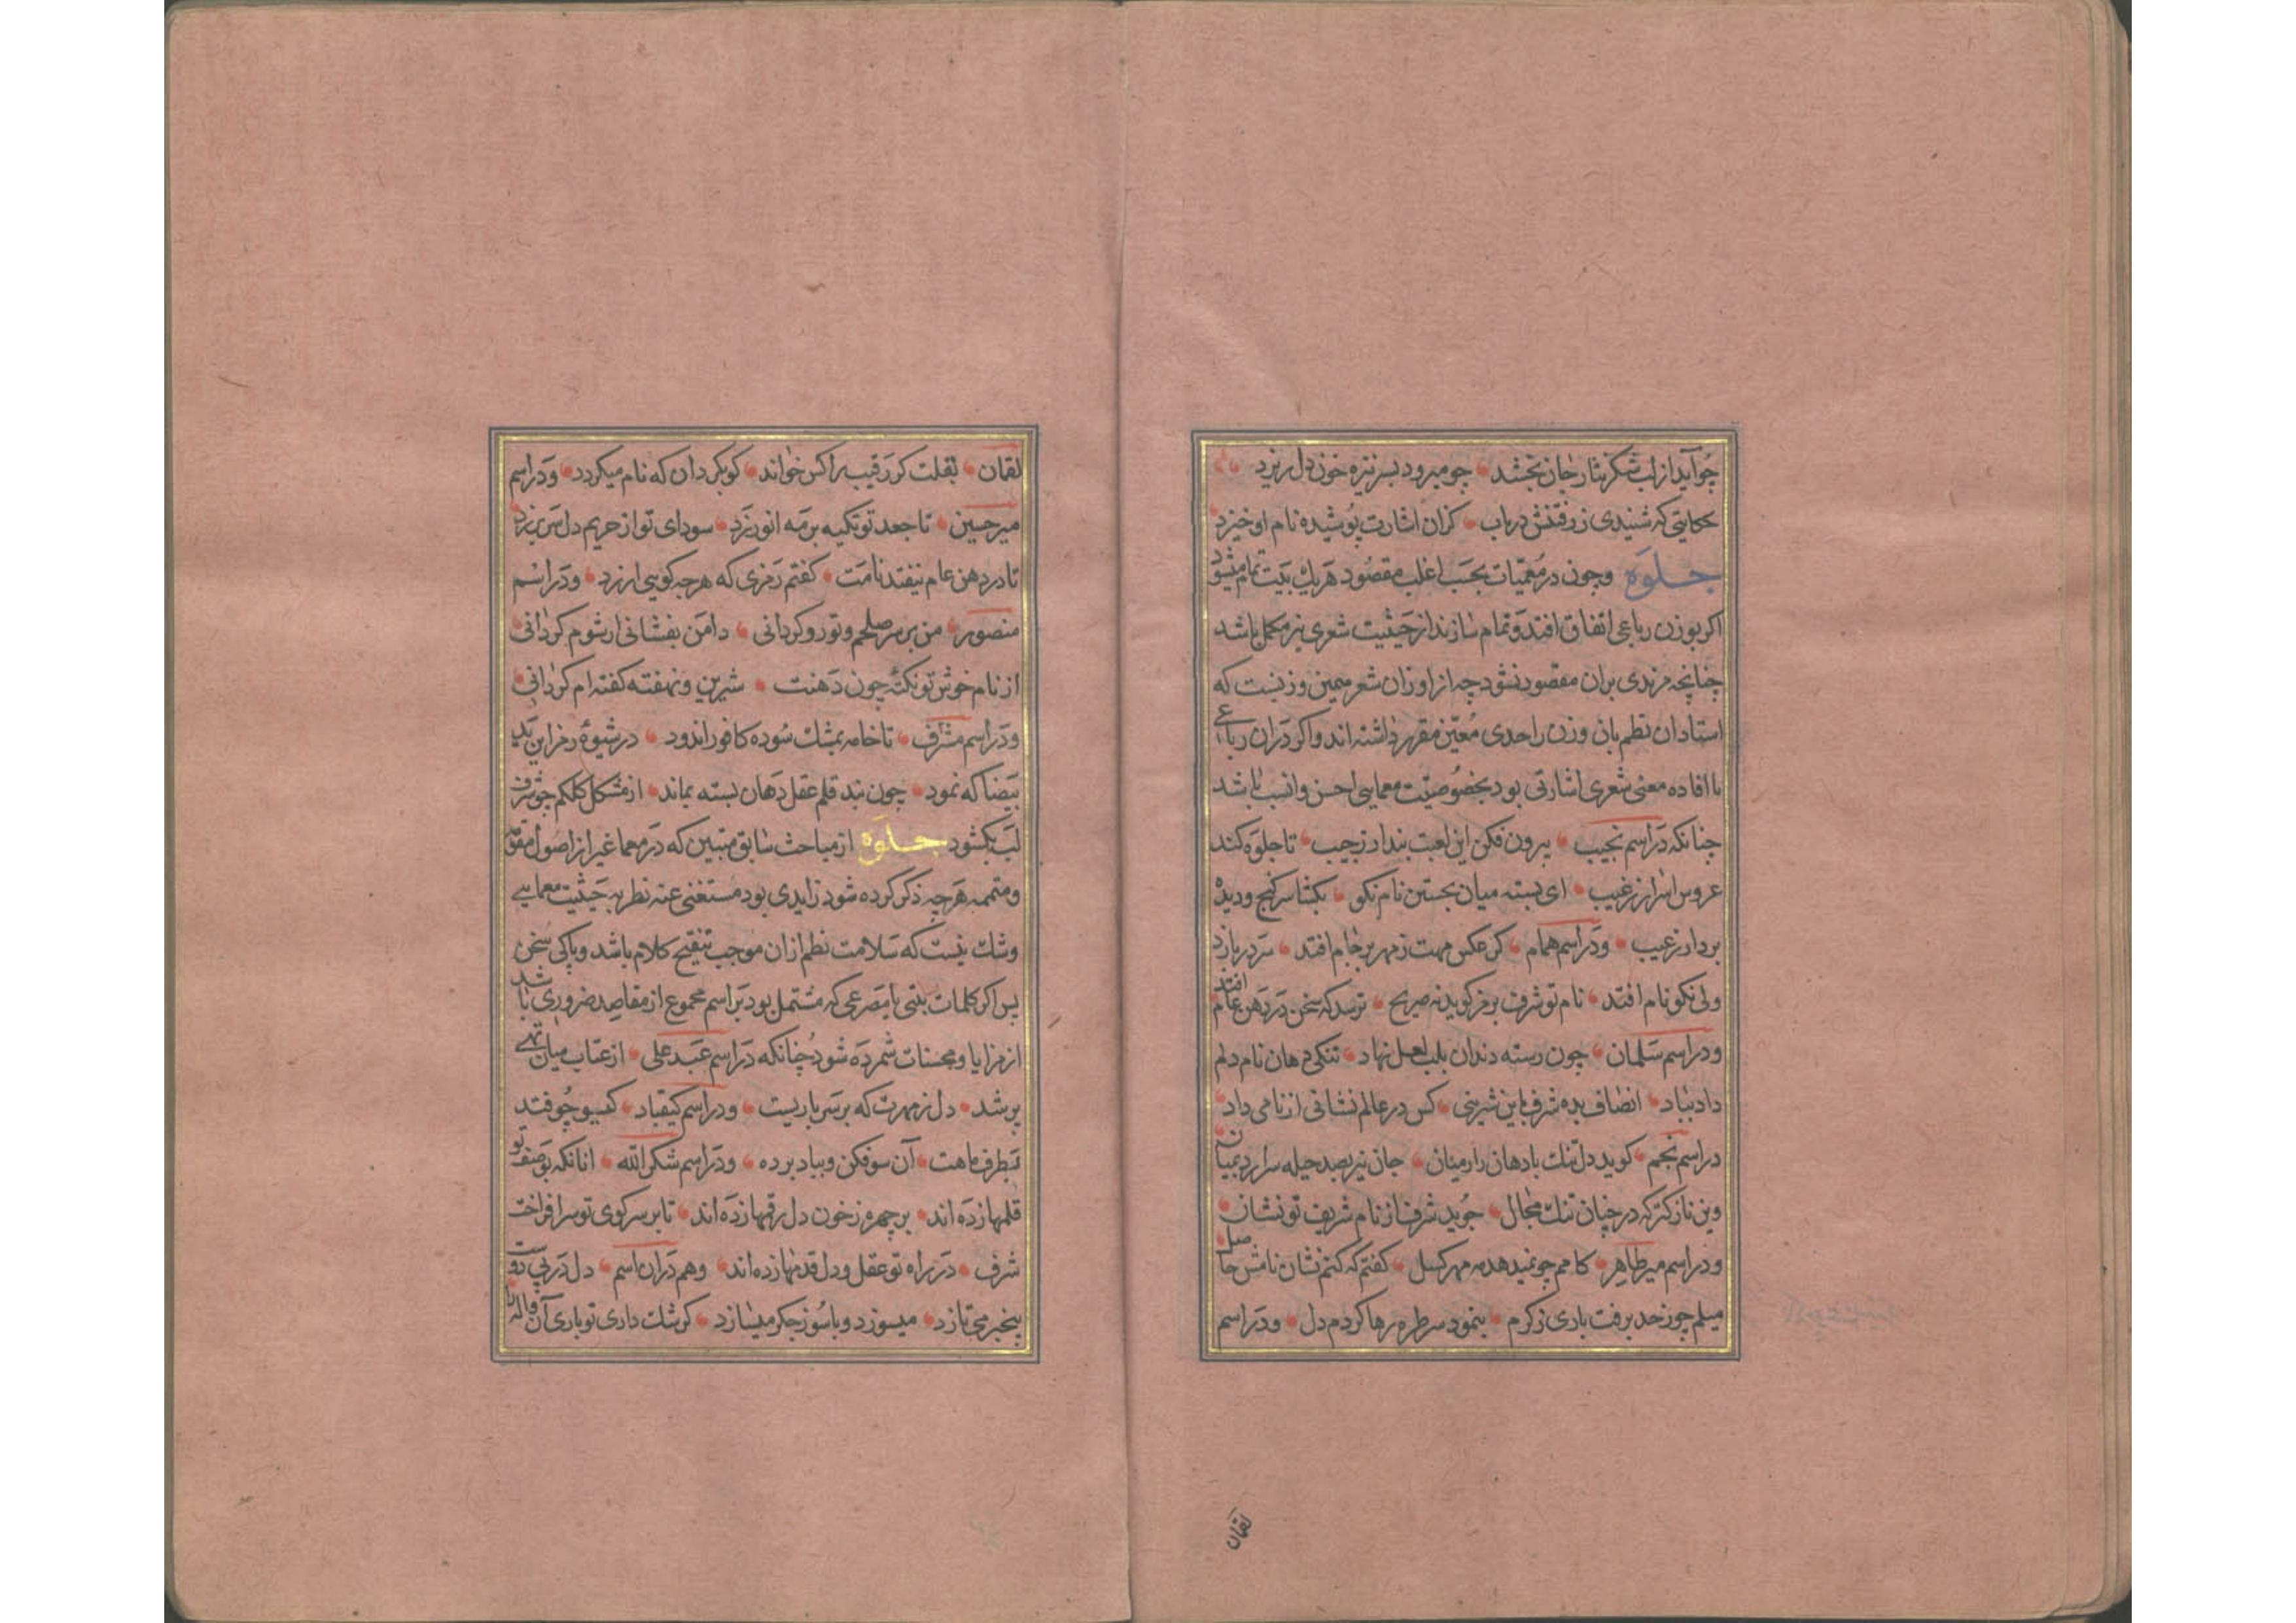 چو آید از لب شکر نثار جان بخشد چو میرود بسر نیزه خون دل ریزد
حکایتی که شنیدی ز رفتنش دریاب کزان اشارت پوشیده نام او خیزد
جلوه وچون در معمیات بحسب اغلب مقصود هر یك بیت تمام میشود
اکر بوزن رباعی اتفاق افتد وتمام سازند از حیثیت شعری نیز مکمل باشد
چنانچه مزیدی بران مقصود نشود چه از اوزان شعر همین وزنیست که
استادان نظم بان وزن را حدی معین مقرر داشته اند واکر دران رباعی
با افاده معنی شعری اشارتی بود بخصوصیت معمایی احسن وانسب باشد
چنانکه در اسم نجیب بیرون فکن این لعبت پندار ز جیب تا جلوه کند
عروس اسرار ز غیب ای بسته میان بجستن نام نکو بکشا سر کنج ودیده
بردار ز عیب ودر اسم همام کر عکس مهت ز مهر بر جام افتد سر دربازد
ولی نکو نام افتد نام تو شرف برمز کوید نه صریح ترسد که سخن در دهن عام افتد
ودر اسم سلمان چون رسته دندان بلب لعل نهاد تنکی دهان نام دلم
داد بباد انصاف بده شرف باین شیرینی کس در عالم نشانی از نامی داد
در اسم نجم کوید دل تنك با دهان راز میان جان نیز بصد حیله سر ارد بمیان
وین نازکتر که در چنان تنك مجال جوید شرف از نام شریف تو نشان
ودر اسم میر طاهر کامم چو نمیدهد مه مهر کسل کفتم که کنم نشان نامش حاصل
میلم چو ز حد برفت باری ز کرم بنمود سر طره رها کردم دل ودر اسم
لقمان
لقمان بقلت کر رقیب را کس خواند کو بکردان که نام میکردد ودر اسم
میر حسین تا جعد تو تکیه بر مه انور زد سودای تو از حریم دل سر بر زد
تا در دهن عام نیفتد نامت کفتم رمزی که هر چه کویی ارزد ودر اسم
منصور من بر سر صلحم وتو رو کردانی دامن بفشانی ار شوم کردانی
از نام خوش تو نکتۀ چون دهنت شیرین ونهفته کفته ام کر دانی
ودر اسم مشرف تا خامه بمشك سوده کافور اندود در شیوۀ رمز این ید
بیضا که نمود چون بند قلم عقل دهان بسته بماند از مشکل کلکم چو شرف
لب بکشود جلوه از مباحث سابق متبین که در معما غیر از اصول مقوم
ومتممه هر چه ذکر کرده شود زایدی بود مستغنی عنه نظر به حیثیت معمایی
وشك نیست که سلامت نظم ازان موجب تنقیح کلام باشد وپاکی سخن
پس اکر کلمات بیتی یا مصرعی که مشتمل بود بر اسم مجموع از مقاصد ضروری باشد
از مزایا ومحسنات شمرده شود چنانکه در اسم عبد علی از عتاب میان تهی
پر شد دل ز مهرت که بر سر یاریست ودر اسم کیقباد کیسو چو فتد
بطرف ماهت آن سو فکن وبیاد برده ودر اسم شکر الله انانکه بوصف تو
قلمها زده اند بر چهره ز خون دل رقمها زده اند تا بر سر کوی تو سر افراخت
شرف در راه تو عقل ودل قدمها زده اند وهم دران اسم دل در پی تو
بیخبر می تازد میسوزد وبا سوز جکر میسازد کر شك داری تو باری آن واله را